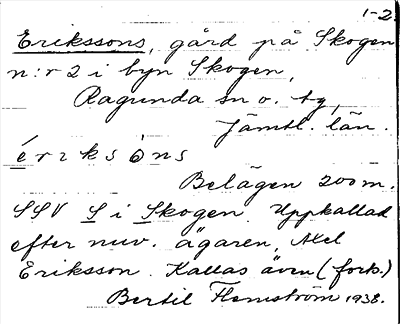 1-2.
Erikssons, gård på Skogen
n:r 2 i byn Skogen,
Ragunda sn o. tg,
Jämtl. län.
é r i k s ò n s
Belägen 200 m.
SSV S i Skogen. Uppkallad
efter nuv. ägaren, Axel
Eriksson. Kallas även (fork.)
Bertil Flemström 1938.